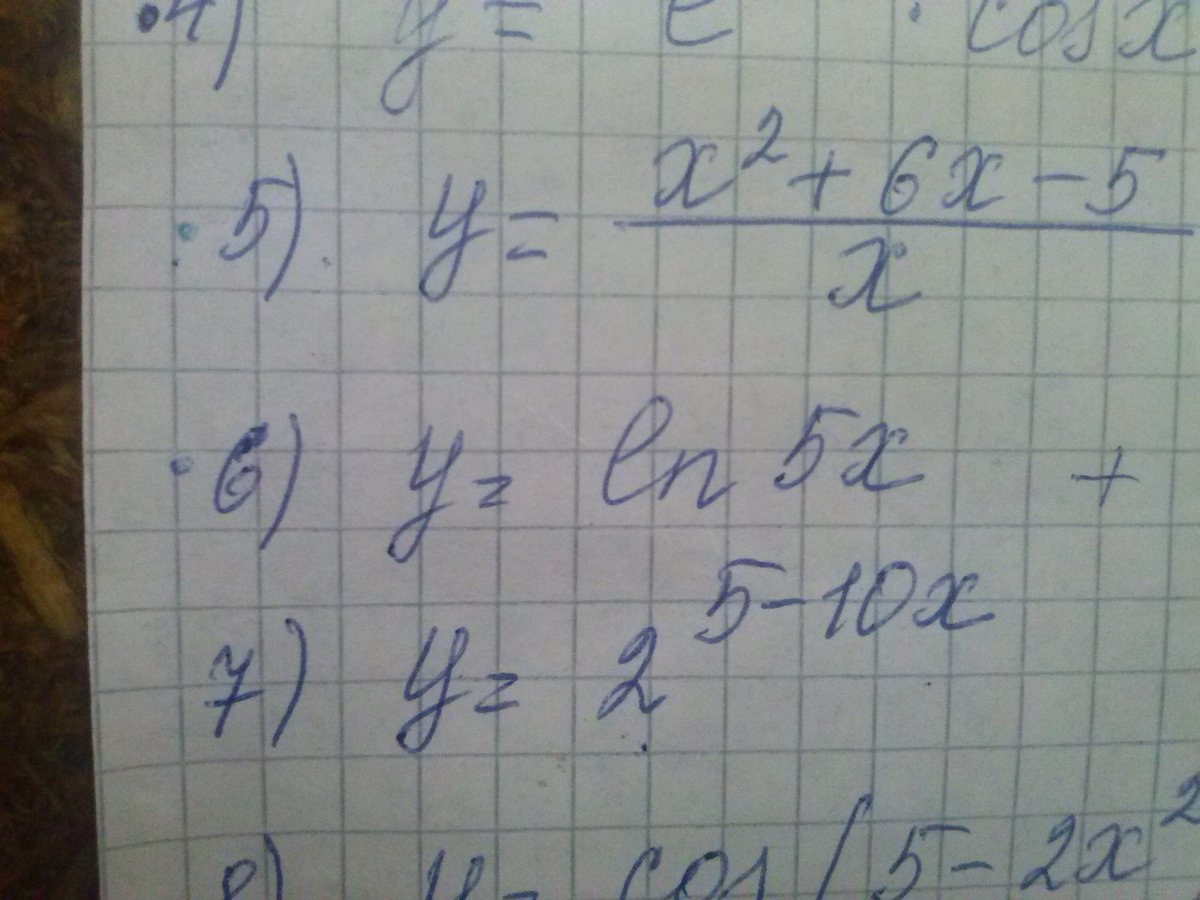 4) y = e · cos x
5) y = \frac{x^2 + 6x - 5}{x}
6) y = ln 5x +
7) y = 2^{5-10x}
8) y = cos(5 - 2x^2